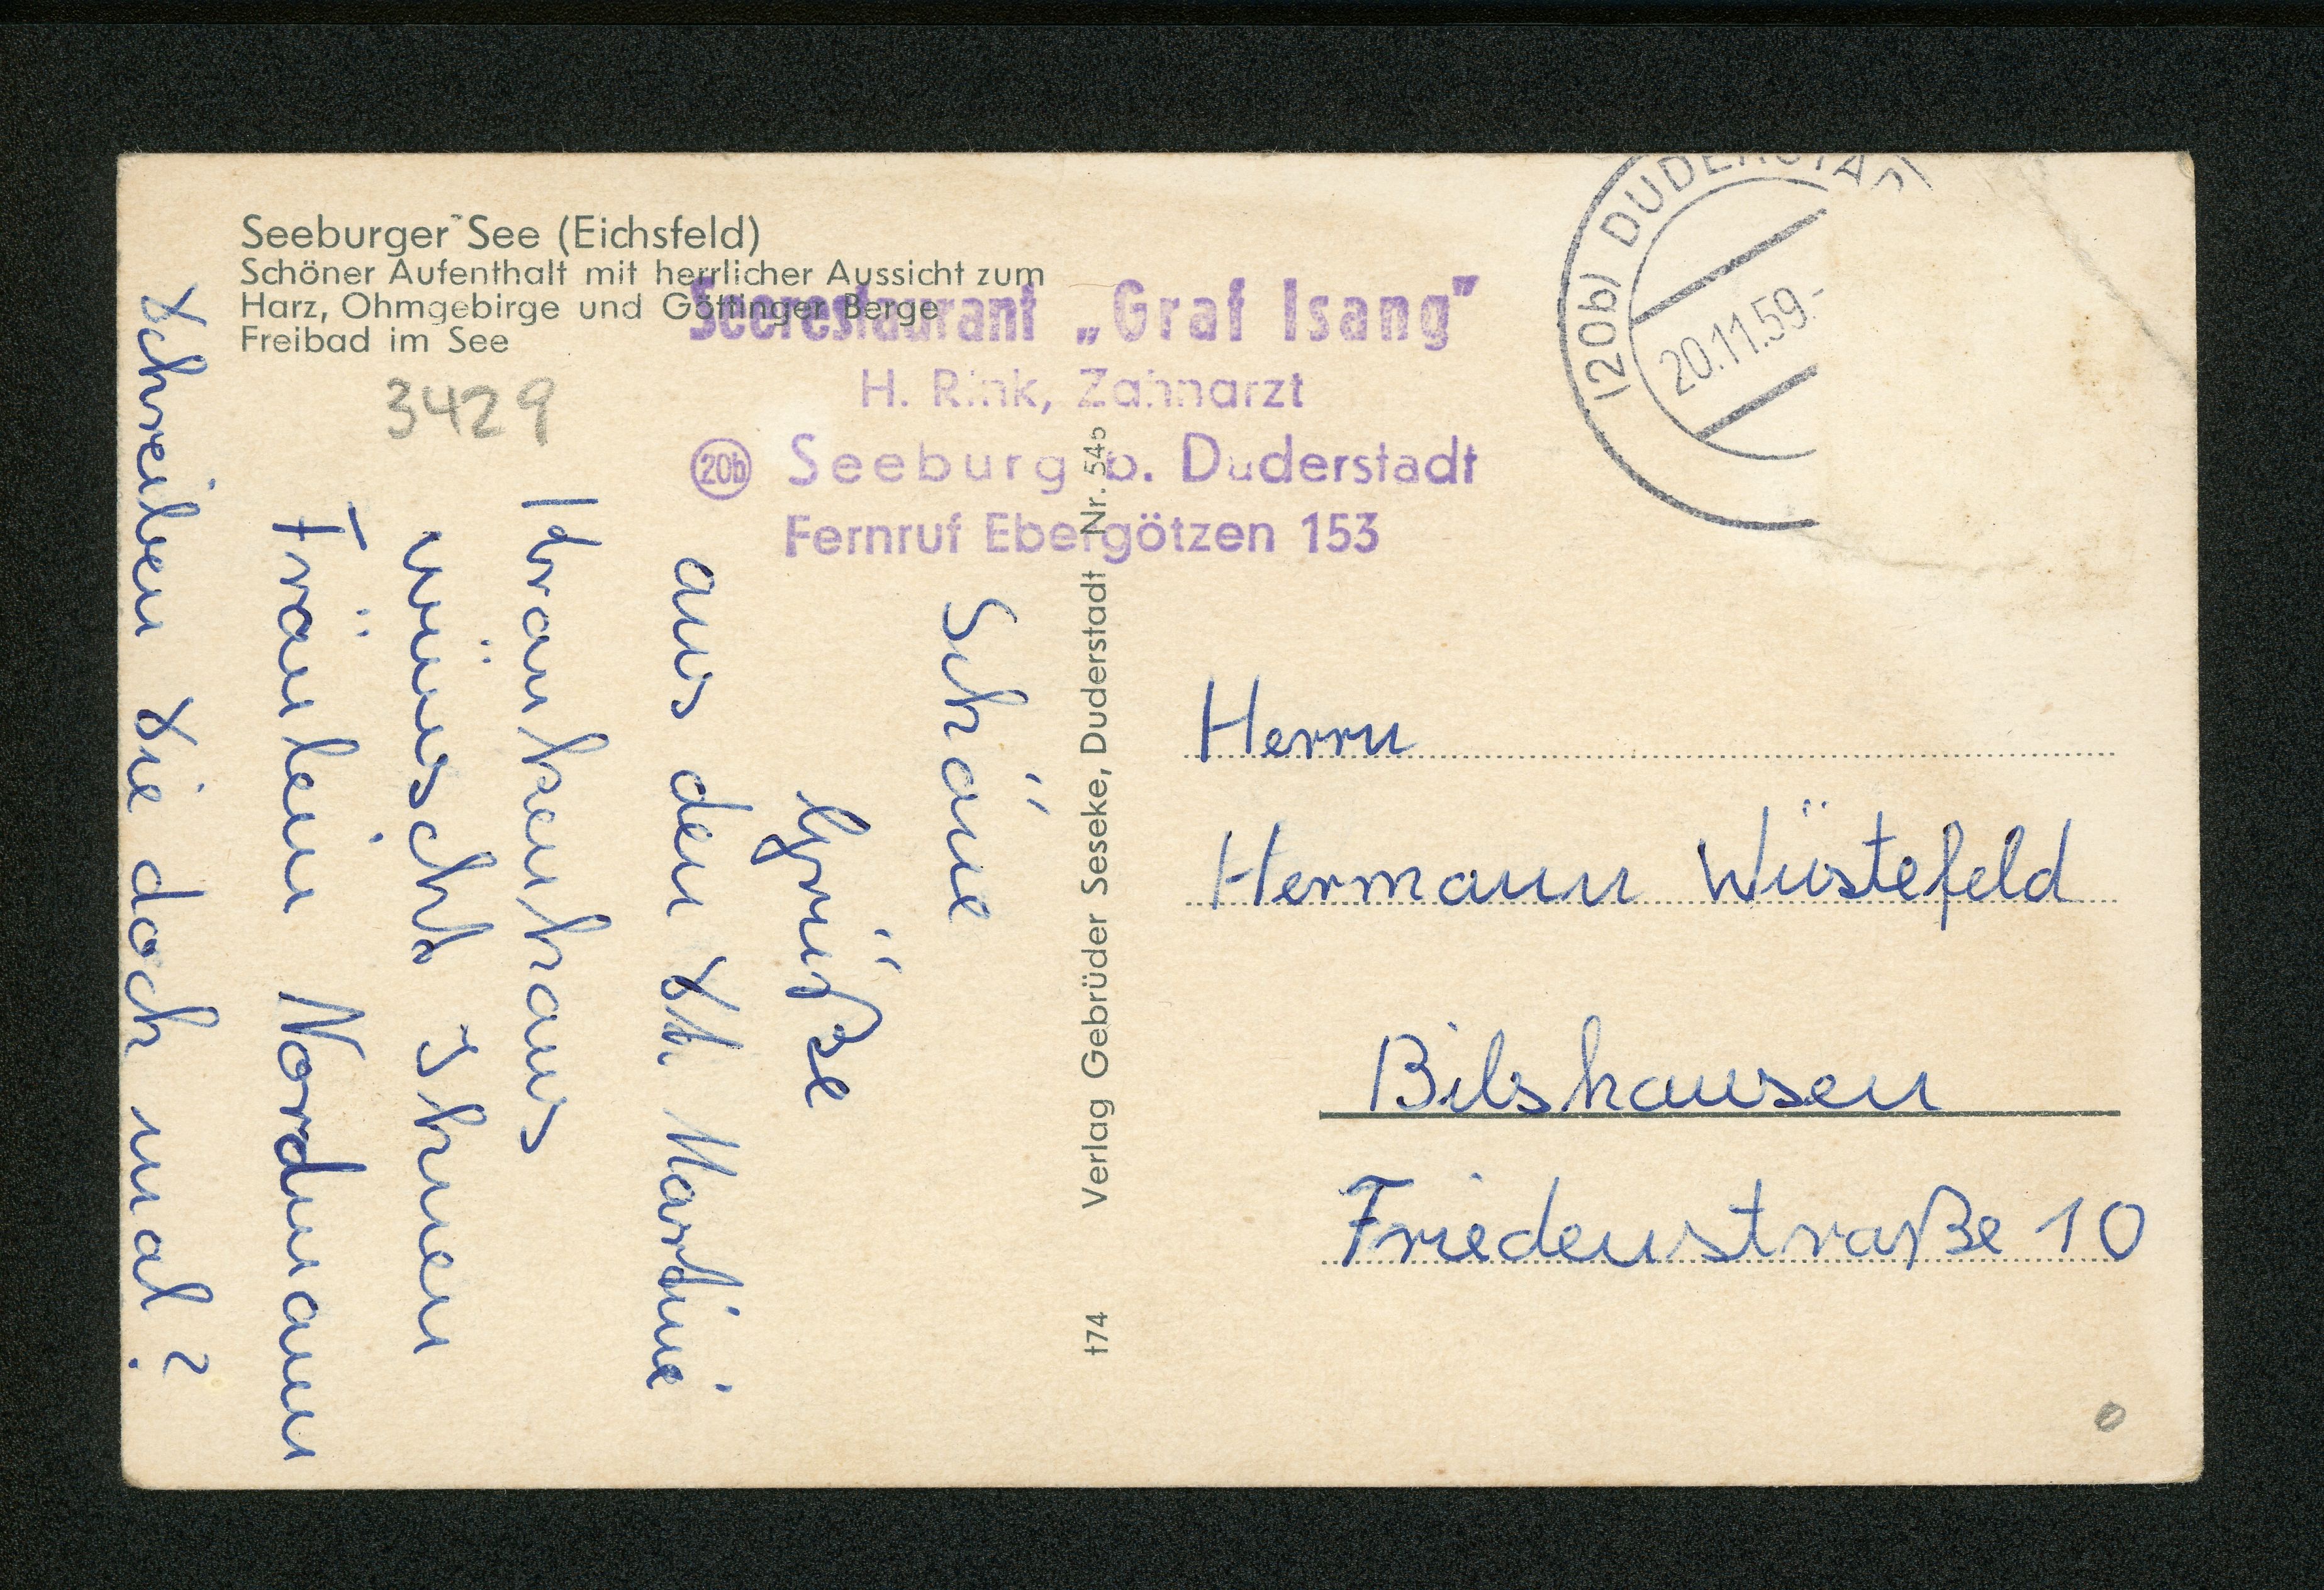 Seeburger See (Eichsfeld)
Schöner Aufenthalt mit herrlicher Aussicht zum
Harz, Ohmgebirge und Göttinger Berge
Freibad im See
3429
Seerestaurant „Graf Isang"
H. Rink, Zahnarzt
20b Seeburg b. Duderstadt
Fernruf Ebergötzen 153
(20b) DUDERSTADT
20.11.59.-
Schöne
Grüße
aus den St. Martini
Krankenhaus
wünscht Ihnen
Fräulein Nordmann
Schreiben Sie doch mal?
t74 Verlag Gebrüder Seseke, Duderstadt Nr. 545
Herrn
Hermann Wüstefeld
Bilshausen
Friedenstraße 10